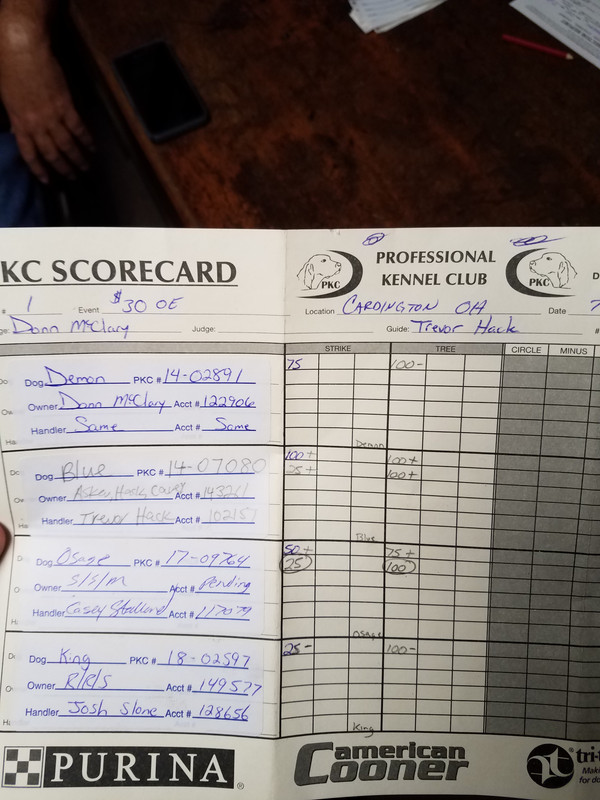 KC SCORECARD
PKC
PROFESSIONAL
KENNEL CLUB
PKC
D
# 1 Event $30 OE
Location CARDINGTON OH Date 7
Donn McClary Judge:
Guide: Trevor Hack #
STRIKE TREE CIRCLE MINUS
Dog Demon PKC # 14-02891
75 100-
Owner Donn McClary Acct # 122906
Handler Same Acct # Same
Demon
Dog Blue PKC # 14-07080
100+ 100+
25+ 100+
Owner Hack, Casey Acct #
Handler Trevor Hack Acct #
Blue
Dog Osage PKC # 17-09764
50+ 75+
25 100
Owner S/S/M Acct # Pending
Handler Casey Acct #
Osage
Dog King PKC # 18-02597
25- 100-
Owner R/R/S Acct # 149577
Handler Josh Slone Acct # 128656
King
PURINA
american
Cooner
tri-t
Maki
for do